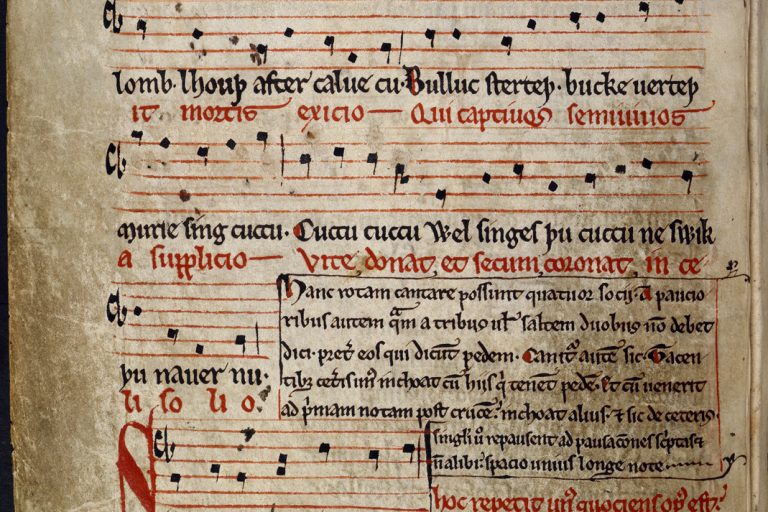 lomb. lhouþ after calue cu. Bulluc sterteþ. bucke uerteþ
it mortis exicio Qui captiuos semiuiuos
murie sing cuccu. Cuccu cuccu Wel singes þu cuccu ne swik
a supplicio Vite donat, et secum coronat, in ce
þu nauer nu.
li so li o.
Hanc rotam cantare possunt quatuor socij. A paucio
ribus autem qͣm a tribus uł saltem duobus nō debet
dici. pret̄ eos qui dicūt pedem. Canit᷑ autē sic. Tacen
tibꝫ cet̄is un᷒ inchoat cū hiis q̇ tenēt pedē. Et cū uenerit
ad p̄mam notam post crucē. inchoat alius. ⁊ sic de ceteris.
singli ū̓ repausent ad pausacōnes sc̄ptas ⁊
n̄ alibi. spacio unius longe note
hoc repetit un᷒ quociens op᷒ est.